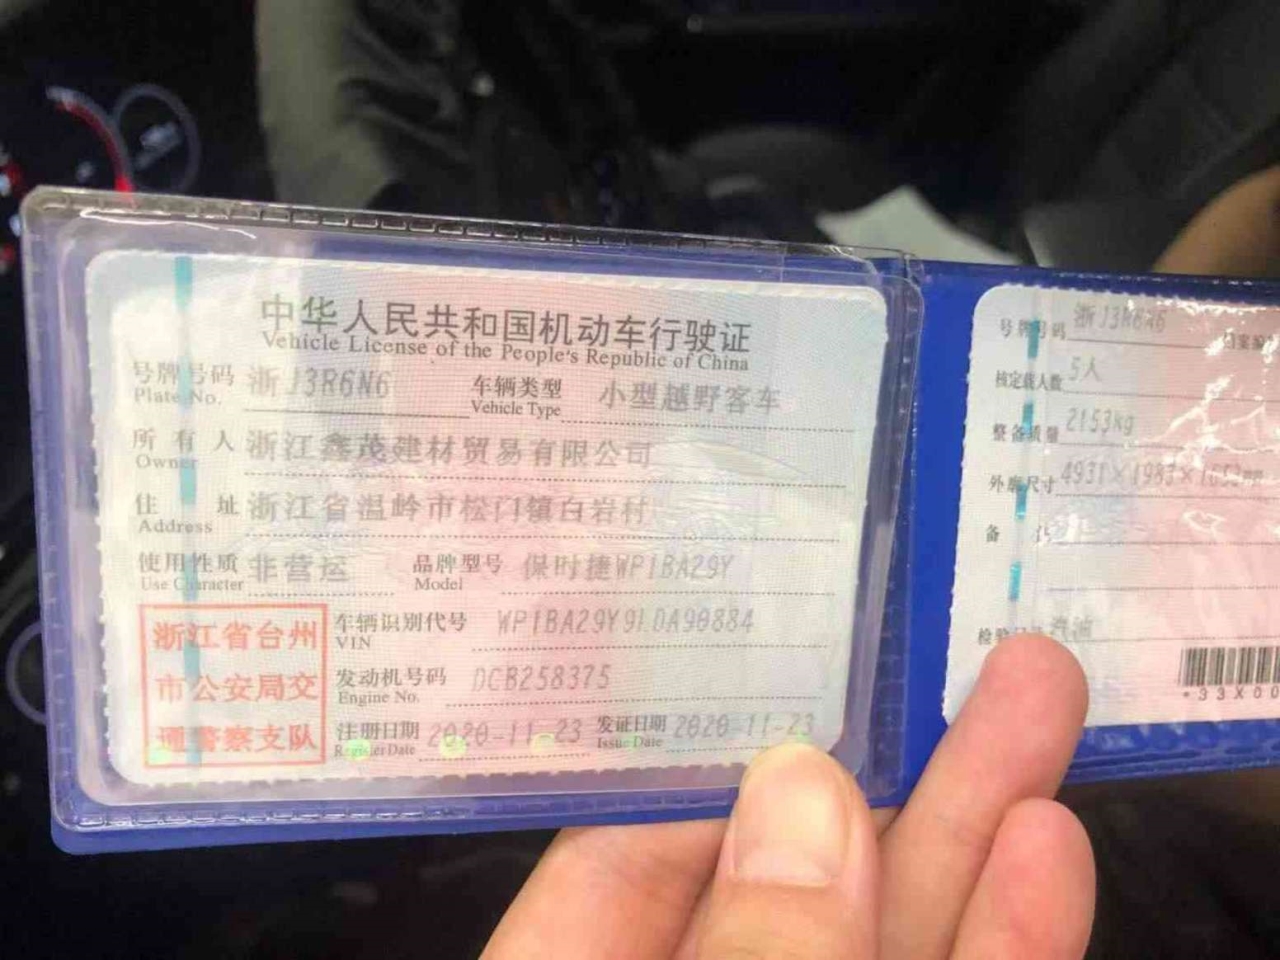 中华人民共和国机动车行驶证
Vehicle License of the People's Republic of China
号牌号码 浙J3R6N6 车辆类型 小型越野客车
Plate No. Vehicle Type
所有人 浙江鑫茂建材贸易有限公司
Owner
住址 浙江省温岭市松门镇白岩村
Address
使用性质 非营运 品牌型号 保时捷WP1BA29Y
Use Character Model
浙江省台州
市公安局交
通警察支队
车辆识别代号 WP1BA29Y9LDA90884
VIN
发动机号码 DCB258375
Engine No.
注册日期 2020-11-23 发证日期 2020-11-23
Register Date Issue Date
号牌号码
核定载人数 5人
整备质量 2153kg
外廓尺寸 4931×1983×
备
检验 汽油
*33X00